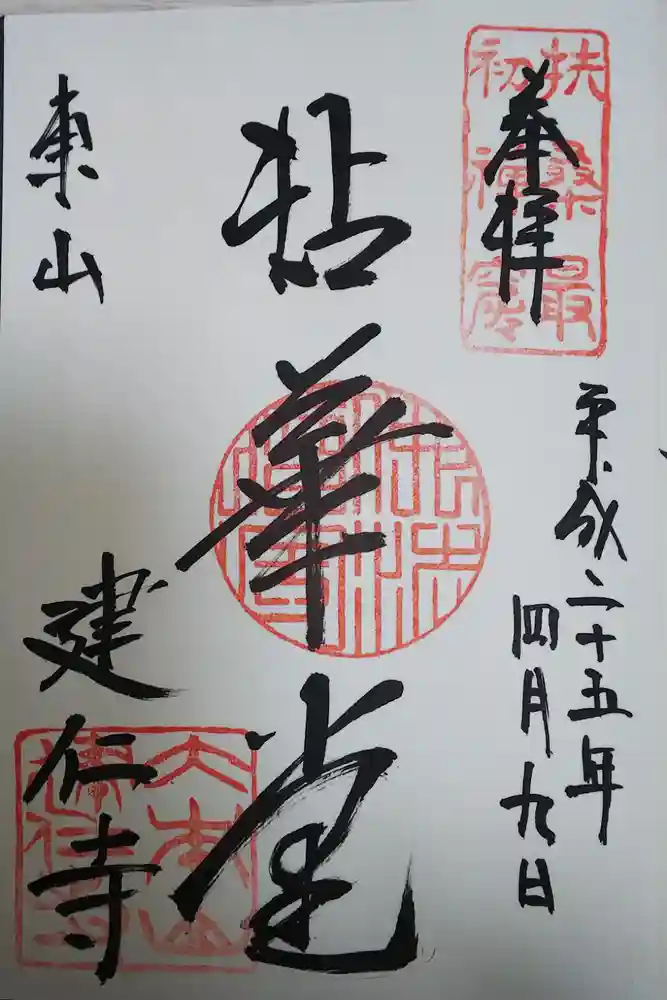 奉拝
扶桑最
初禅窟
平成二十五年
四月九日
拈華堂
東山
建仁寺
大本山
建仁寺